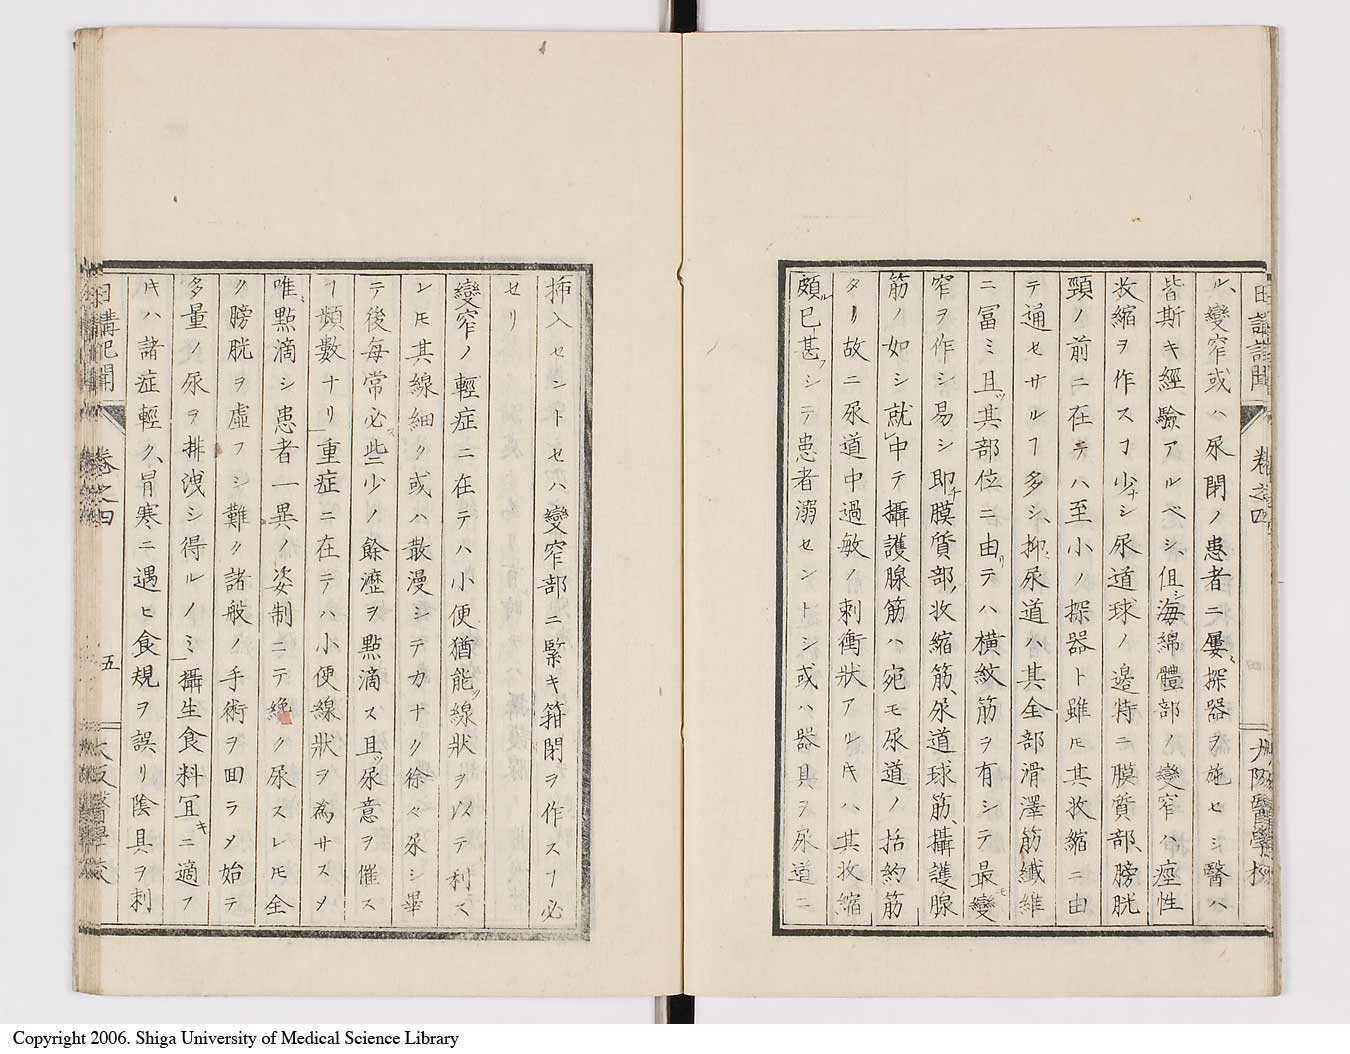 日講記聞 卷之四 大阪醫學校
ル變窄或ハ尿閉ノ患者ニ屢探器ヲ施セシ醫ハ
皆斯キ經驗アルベシ、但シ海綿體部ノ變窄ハ痙性
收縮ヲ作スヿ少ナシ尿道球ノ邊特ニ膜質部、膀胱
頸ノ前ニ在テハ至小ノ探器ト雖モ其收縮ニ由
テ通セサルヿ多シ、抑尿道ハ其全部滑澤筋纎維
ニ冨ミ且ツ其部位ニ由リテハ横紋筋ヲ有シテ最モ變
窄ヲ作シ易シ即チ膜質部ノ收縮筋、尿道球筋、攝護腺
筋ノ如シ就中テ攝護腺筋ハ宛モ尿道ノ括約筋
タリ故ニ尿道中過敏ノ刺衝狀アルキハ其收縮
頗ル已甚フシテ患者溺セントシ或ハ器具ヲ尿道ニ
揷入セントセハ變窄部ニ緊キ箝閉ヲ作スヿ必
セリ
變窄ノ輕症ニ在テハ小便猶能ツ線狀ヲ以テ利ス
レモ其線細ク或ハ散漫シテカナク徐々尿シ畢
テ後每常必ス些少ノ餘瀝ヲ點滴ス且ツ尿意ヲ催ス
ヿ頻數ナリ重症ニ在テハ小便線狀ヲ為サスメ
唯點滴シ患者一異ノ姿制ニテ絶ク尿スレモ全
ク膀胱ヲ虛フシ難ク諸般ノ手術ヲ囬ラメ始テ
多量ノ尿ヲ排洩シ得ルノミ攝生食料冝キニ適フ
キハ諸症輕ク、冐寒ニ遇ヒ食規ヲ誤リ陰具ヲ刺
日講記聞 卷之四 五 大阪醫學校
Copyright 2006. Shiga University of Medical Science Library